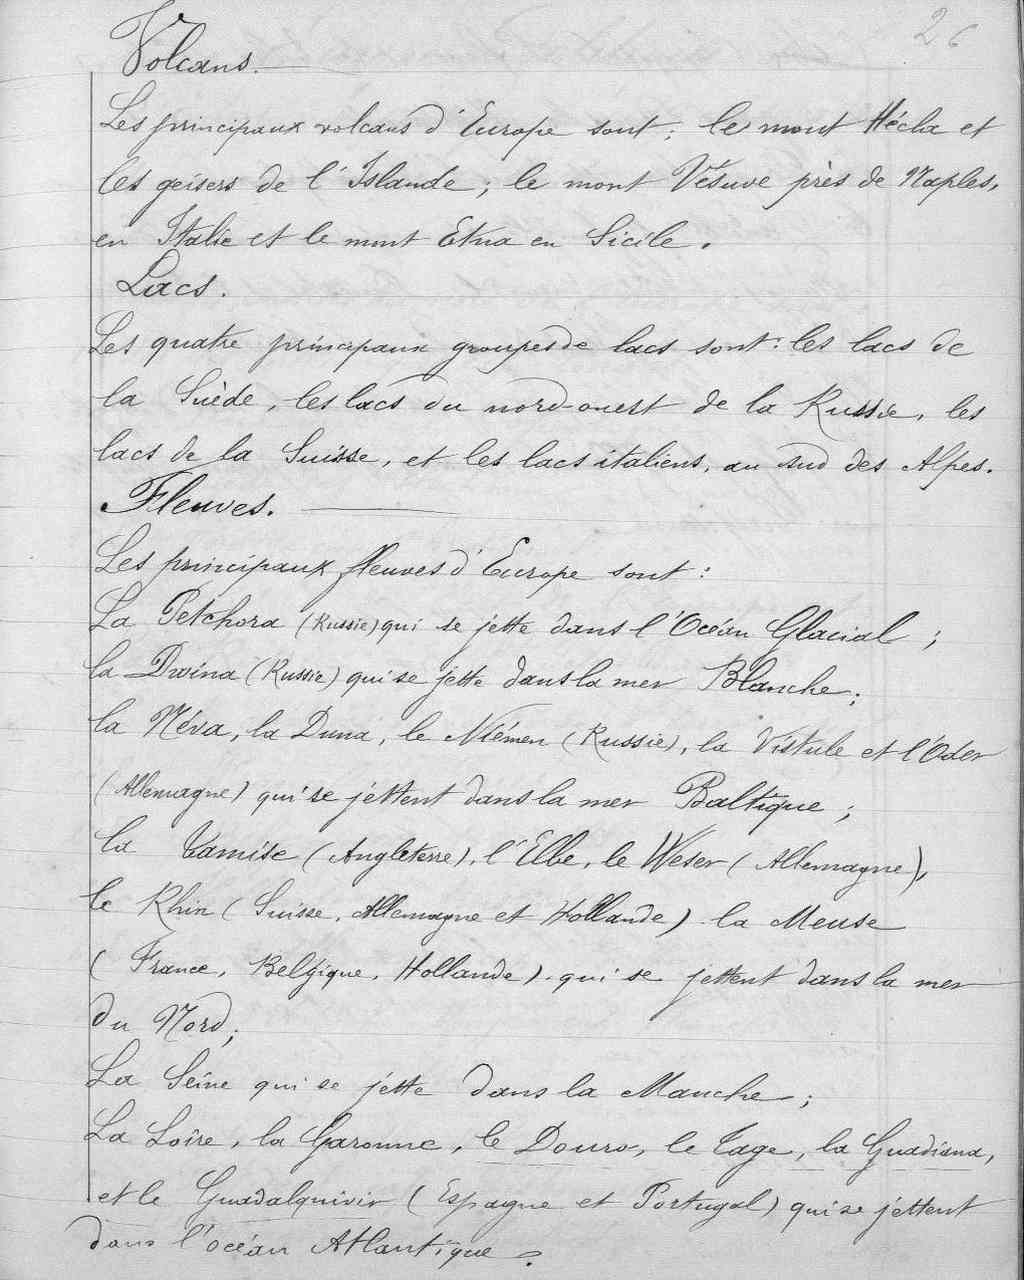 26
Volcans.
Les principaux volcans d'Europe sont; le mont Hécla et
les geisers de l'Islande; le mont Vésuve près de Naples,
en Italie et le mont Etna en Sicile.
Lacs.
Les quatre principaux groupes de lacs sont: les lacs de
la Suède, les lacs du nord-ouest de la Russie, les
lacs de la Suisse, et les lacs italiens, au sud des Alpes.
Fleuves.
Les principaux fleuves d'Europe sont:
La Petchora (Russie) qui se jette dans l'Océan Glacial;
la Dwina (Russie) qui se jette dans la mer Blanche;
la Néva, la Duna, le Niémen (Russie), la Vistule et l'Oder
(Allemagne) qui se jettent dans la mer Baltique;
la Tamise (Angleterre), l'Elbe, le Weser (Allemagne),
le Rhin (Suisse, Allemagne et Hollande) la Meuse
(France, Belgique, Hollande) qui se jettent dans la mer
du Nord;
La Seine qui se jette dans la Manche;
La Loire, la Garonne, le Douro, le Tage, la Guadiana,
et le Guadalquivir (Espagne et Portugal) qui se jettent
dans l'océan Atlantique.